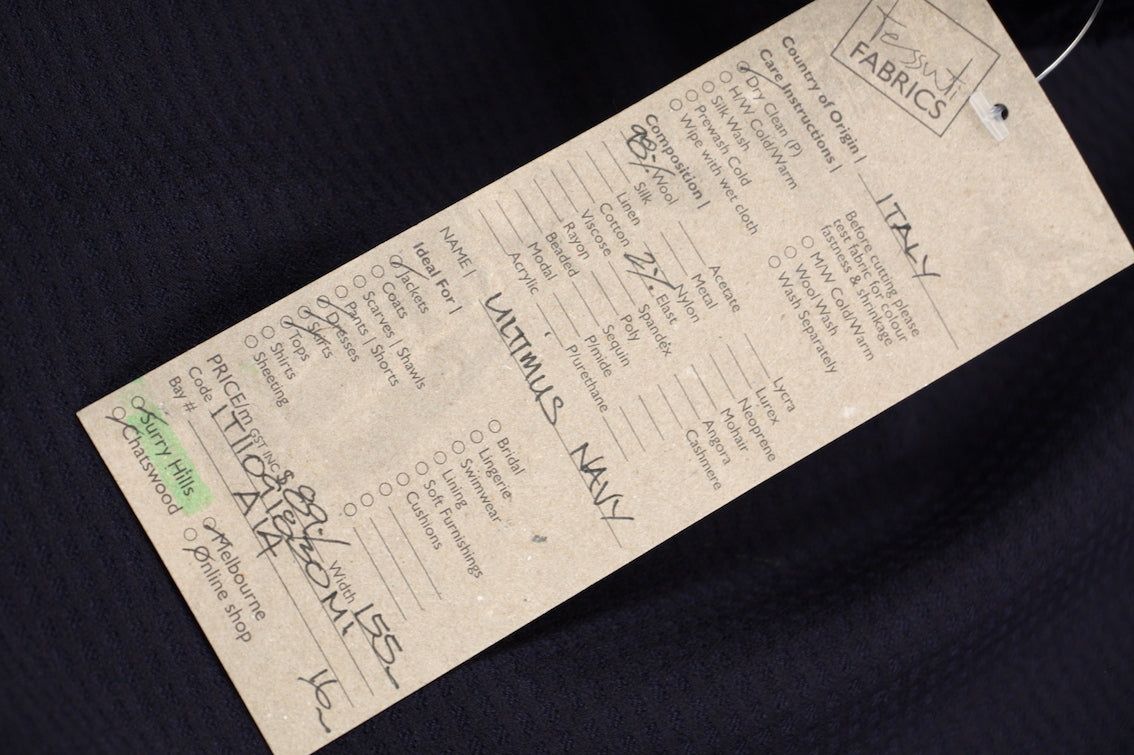 tessuti
FABRICS
Country of Origin | ITALY
Care Instructions |
Dry Clean (P)
H/W Cold/Warm
Silk Wash
Prewash Cold
Wipe with wet cloth
Before cutting please
test fabric for colour
fastness & shrinkage
M/W Cold/Warm
Wool Wash
Wash Separately
Composition |
98% Wool
Silk
Linen
Cotton
Viscose
Rayon
Beaded
Modal
Acrylic
Acetate
Metal
Nylon
2% Elast
Spandex
Poly
Sequin
P/mide
P/urethane
Lycra
Lurex
Neoprene
Mohair
Angora
Cashmere
NAME | ULTIMUS NAVY
Ideal For |
Jackets
Coats
Scarves | Shawls
Pants | Shorts
Dresses
Skirts
Tops
Shirts
Sheeting
Bridal
Lingerie
Swimwear
Lining
Soft Furnishings
Cushions
PRICE/m GST INC $ 89./ Width 155
Code
Bay # 16
Surry Hills
Chatswood
Melbourne
Online shop